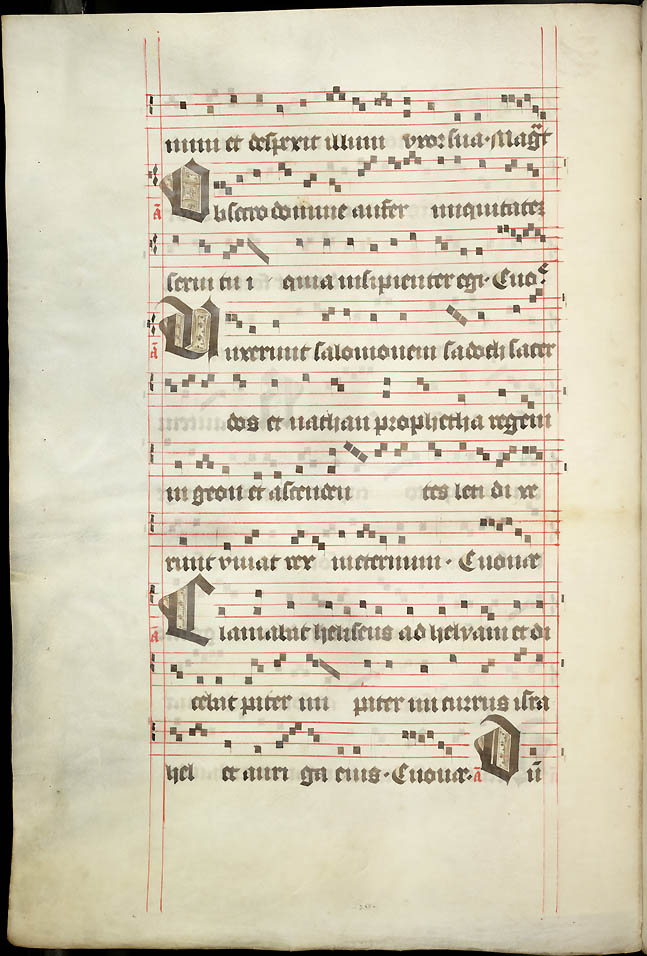 num et despexit illum uxor sua. Mag̃t
A Obsecro domine aufer iniquitatez
serui tui quia insipienter egi. Euoe
A Unxerunt salomonem sadoch sacer
dos et nathan prophetha regem
in geon et ascenden tes leti dixe
runt viuat rex ineternum. Euouae
A Clamabat heliseus ad helyam et di
cebat pater mi pater mi currus isra
hel et auriga eius. Euouae. A Dũ